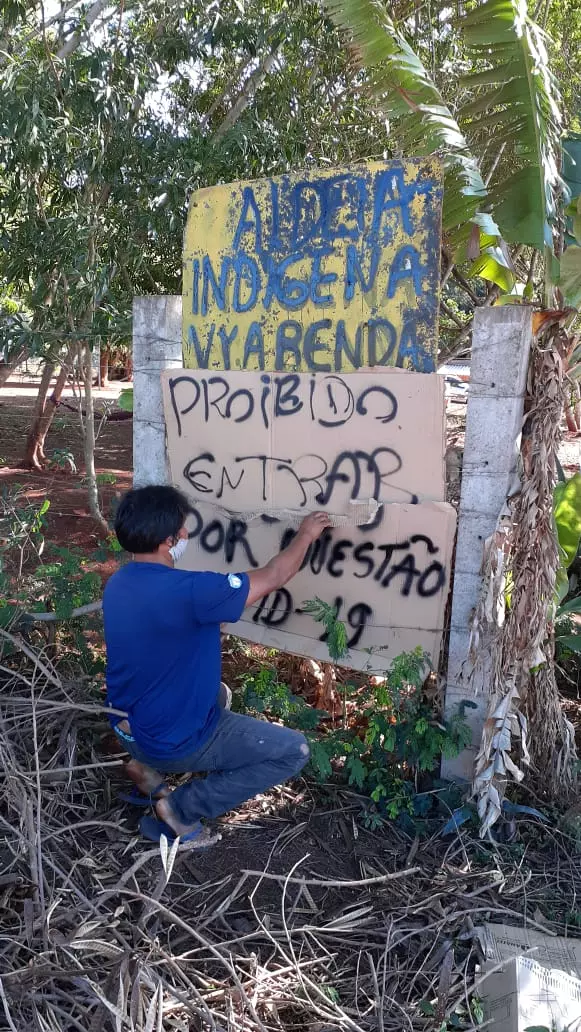 ALDEIA
INDIGENA
VYARENDA
PROIBIDO
ENTRAR
POR QUESTÃO
ID-19